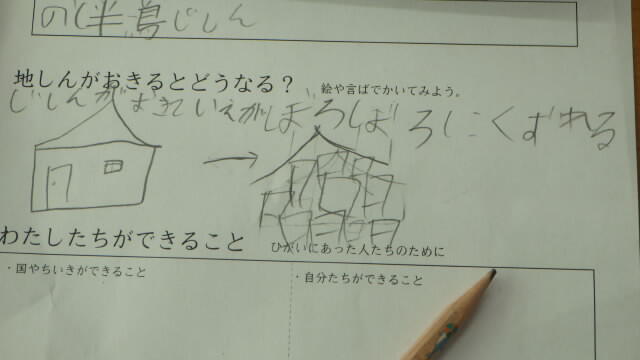 のと半島じしん
地しんがおきるとどうなる？ 絵や言ばでかいてみよう。
じしんがおきていえがぼろぼろにくずれる
わたしたちができること ひがいにあった人たちのために
・国やちいきができること
・自分たちができること